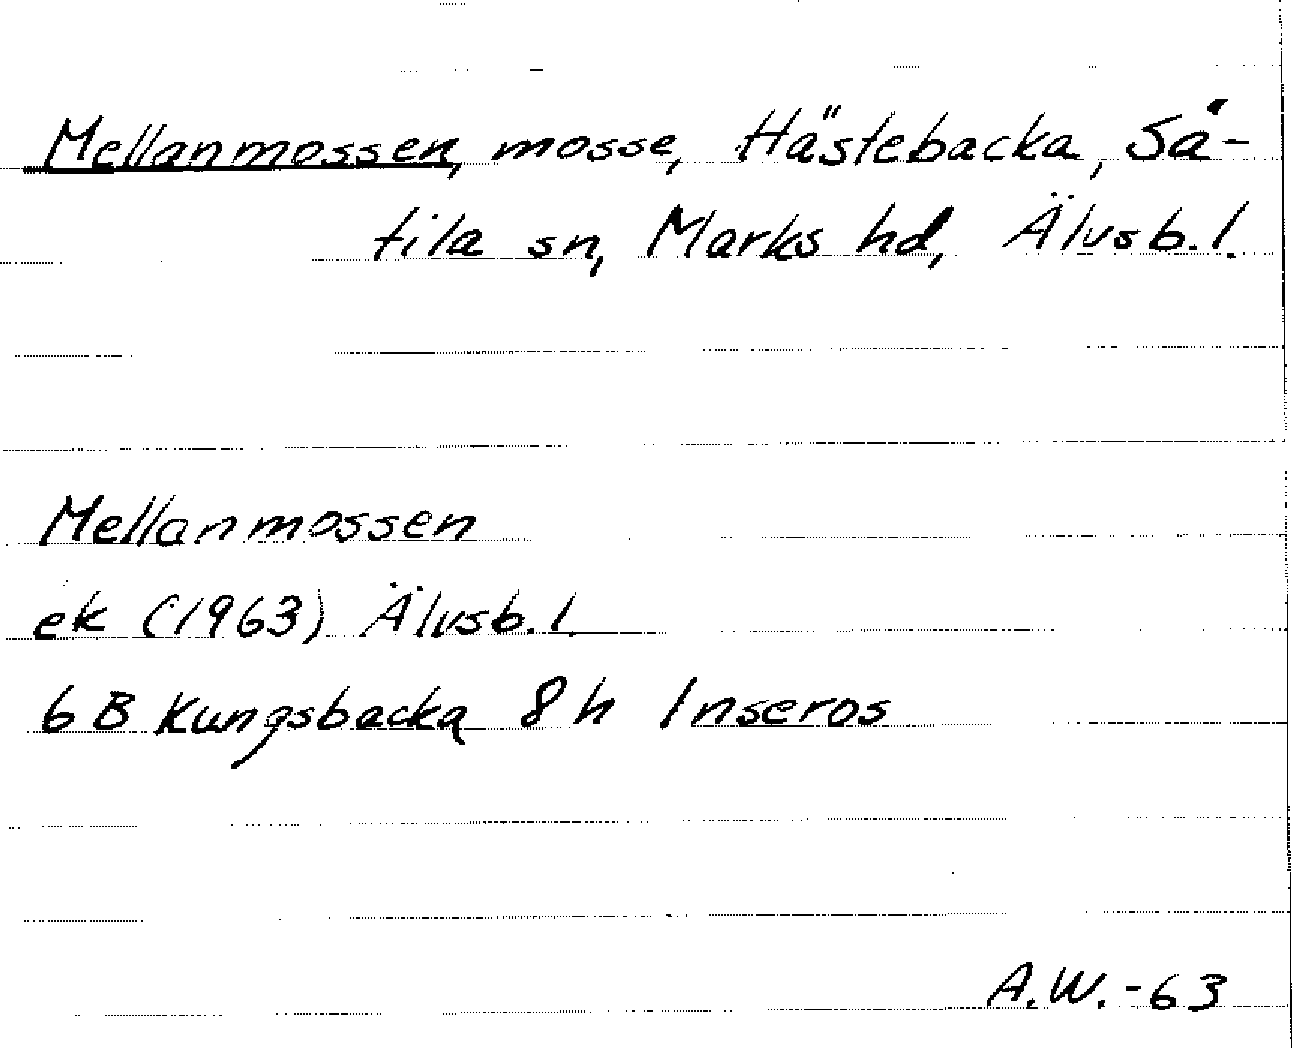 Mellanmossen, mosse, Hästebacka, Sä-
tila sn, Marks hd, Älvsb. l.
Mellanmossen
ek (1963) Älvsb. l.
6 B Kungsbacka 8 h Inseros
A.W. -63